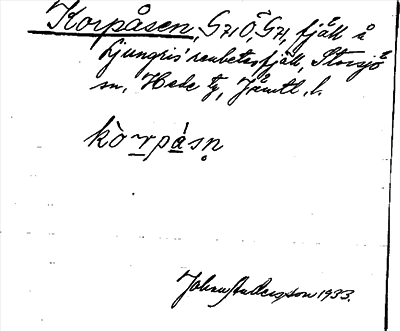 Korpåsen, G71Ö, G71, fjäll å
Ljungris' renbetesfjäll, Storsjö
sn, Hede tg, Jämtl. l.
kò rpásn̥
Johan Anderson 1933.